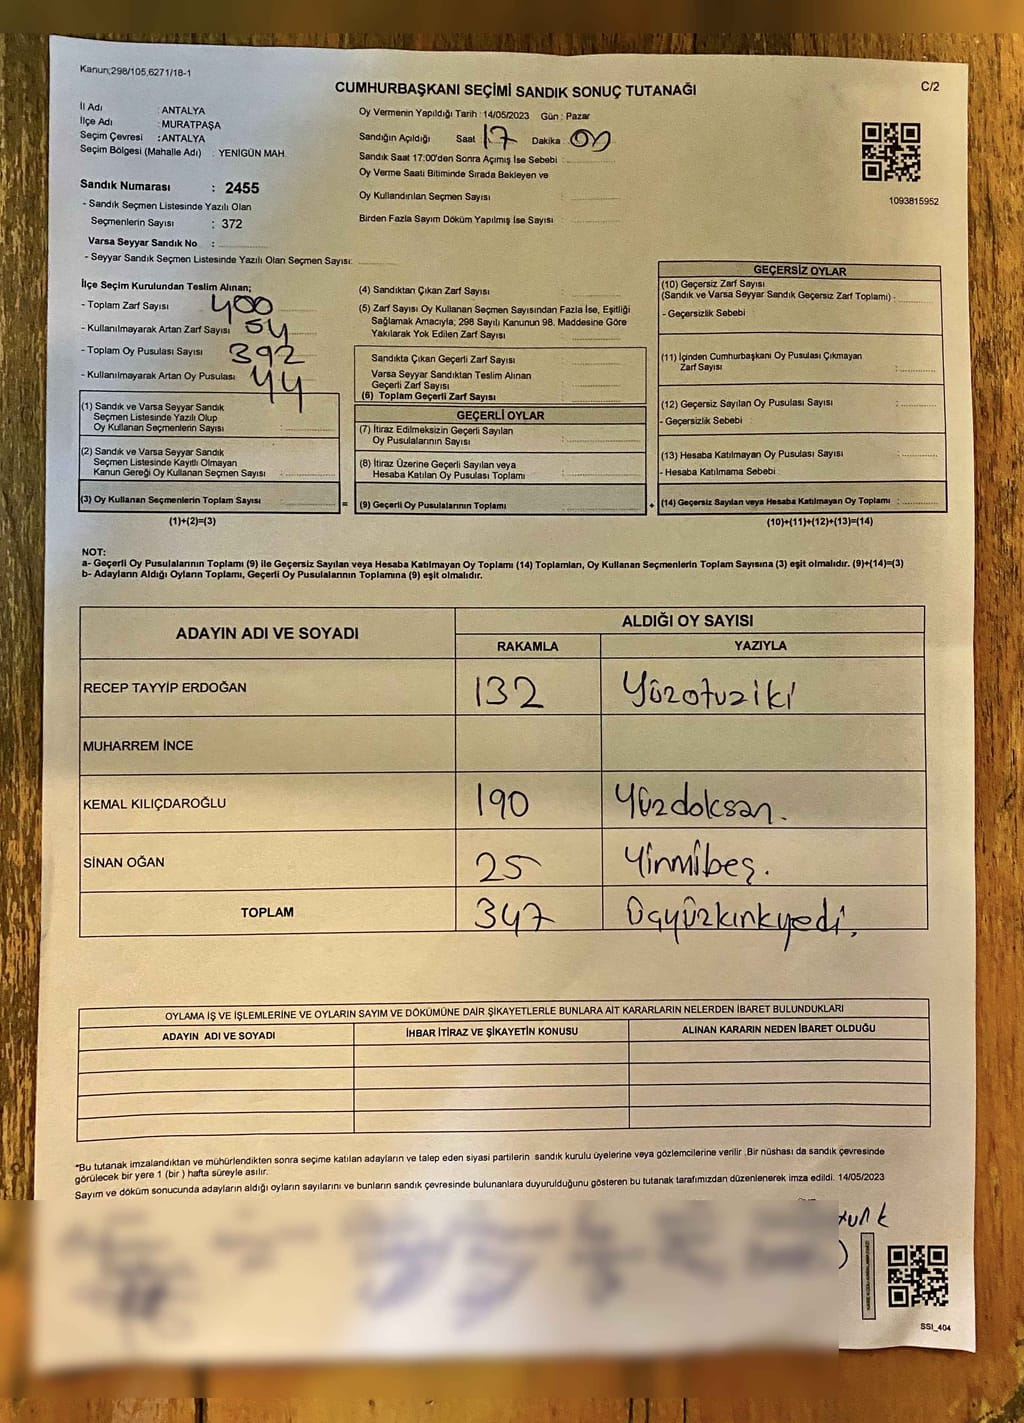 Kanun;298/105,6271/18-1
CUMHURBAŞKANI SEÇİMİ SANDIK SONUÇ TUTANAĞI
C/2
İl Adı : ANTALYA
İlçe Adı : MURATPAŞA
Seçim Çevresi : ANTALYA
Seçim Bölgesi (Mahalle Adı) : YENİGÜN MAH.
Oy Vermenin Yapıldığı Tarih : 14/05/2023 Gün : Pazar
Sandığın Açıldığı Saat 17 Dakika
Sandık Saat 17:00'den Sonra Açımış İse Sebebi :
Oy Verme Saati Bitiminde Sırada Bekleyen ve
Oy Kullandırılan Seçmen Sayısı :
Birden Fazla Sayım Döküm Yapılmış İse Sayısı :
1093815952
Sandık Numarası : 2455
- Sandık Seçmen Listesinde Yazılı Olan
Seçmenlerin Sayısı : 372
Varsa Seyyar Sandık No :
- Seyyar Sandık Seçmen Listesinde Yazılı Olan Seçmen Sayısı:
İlçe Seçim Kurulundan Teslim Alınan;
- Toplam Zarf Sayısı 400
- Kullanılmayarak Artan Zarf Sayısı 54
- Toplam Oy Pusulası Sayısı 392
- Kullanılmayarak Artan Oy Pusulası 44
(1) Sandık ve Varsa Seyyar Sandık
Seçmen Listesinde Yazılı Olup
Oy Kullanan Seçmenlerin Sayısı :
(2) Sandık ve Varsa Seyyar Sandık
Seçmen Listesinde Kayıtlı Olmayan
Kanun Gereği Oy Kullanan Seçmen Sayısı :
(3) Oy Kullanan Seçmenlerin Toplam Sayısı :
(1)+(2)=(3)
=
(4) Sandıktan Çıkan Zarf Sayısı :
(5) Zarf Sayısı Oy Kullanan Seçmen Sayısından Fazla İse, Eşitliği
Sağlamak Amacıyla; 298 Sayılı Kanunun 98. Maddesine Göre
Yakılarak Yok Edilen Zarf Sayısı :
Sandıkta Çıkan Geçerli Zarf Sayısı :
Varsa Seyyar Sandıktan Teslim Alınan
Geçerli Zarf Sayısı :
(6) Toplam Geçerli Zarf Sayısı :
GEÇERLİ OYLAR
(7) İtiraz Edilmeksizin Geçerli Sayılan
Oy Pusulalarının Sayısı :
(8) İtiraz Üzerine Geçerli Sayılan veya
Hesaba Katılan Oy Pusulası Toplamı :
(9) Geçerli Oy Pusulalarının Toplamı :
+
GEÇERSİZ OYLAR
(10) Geçersiz Zarf Sayısı
(Sandık ve Varsa Seyyar Sandık Geçersiz Zarf Toplamı) :
- Geçersizlik Sebebi
(11) İçinden Cumhurbaşkanı Oy Pusulası Çıkmayan
Zarf Sayısı :
(12) Geçersiz Sayılan Oy Pusulası Sayısı :
- Geçersizlik Sebebi :
(13) Hesaba Katılmayan Oy Pusulası Sayısı :
- Hesaba Katılmama Sebebi :
(14) Geçersiz Sayılan veya Hesaba Katılmayan Oy Toplamı :
(10)+(11)+(12)+(13)=(14)
NOT:
a- Geçerli Oy Pusulalarının Toplamı (9) ile Geçersiz Sayılan veya Hesaba Katılmayan Oy Toplamı (14) Toplamları, Oy Kullanan Seçmenlerin Toplam Sayısına (3) eşit olmalıdır. (9)+(14)=(3)
b- Adayların Aldığı Oyların Toplamı, Geçerli Oy Pusulalarının Toplamına (9) eşit olmalıdır.
ADAYIN ADI VE SOYADI
ALDIĞI OY SAYISI
RAKAMLA YAZIYLA
RECEP TAYYİP ERDOĞAN 132 Yüzotuziki
MUHARREM İNCE
KEMAL KILIÇDAROĞLU 190 Yüzdoksan.
SİNAN OĞAN 25 Yirmibeş.
TOPLAM 347 Üçyüzkırkyedi.
OYLAMA İŞ VE İŞLEMLERİNE VE OYLARIN SAYIM VE DÖKÜMÜNE DAİR ŞİKAYETLERLE BUNLARA AİT KARARLARIN NELERDEN İBARET BULUNDUKLARI
ADAYIN ADI VE SOYADI İHBAR İTİRAZ VE ŞİKAYETİN KONUSU ALINAN KARARIN NEDEN İBARET OLDUĞU
*Bu tutanak imzalandıktan ve mühürlendikten sonra seçime katılan adayların ve talep eden siyasi partilerin sandık kurulu üyelerine veya gözlemcilerine verilir .Bir nüshası da sandık çevresinde
görülecek bir yere 1 (bir ) hafta süreyle asılır.
Sayım ve döküm sonucunda adayların aldığı oyların sayılarını ve bunların sandık çevresinde bulunanlara duyurulduğunu gösteren bu tutanak tarafımızdan düzenlenerek imza edildi. 14/05/2023
SSI_404